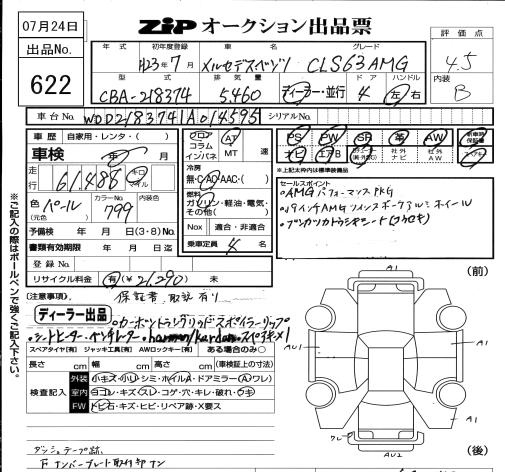 07月24日
出品No.
622
ZiP オークション出品票
評価点
4.5
内装
B
年式 初年度登録 車名 グレード
H23年7月 メルセデスベンツ CLS63AMG
型式 排気量 ドア ハンドル
CBA-218374 5,460 ディーラー・並行 4 左・右
車台No. WDD2183741A014595 シリアルNo.
車歴 自家用・レンタ・( )
車検 年 月
走行 61,488 キロ マイル
色 パール (元色)
カラーNo. 799 内装色
予備検 年 月 日(3・8)No.
書類有効期限 年 月 日迄
登録No.
リサイクル料金 有(¥21,290) 未
フロア コラム インパネ
AT MT 速
冷房 無・C・AC・AAC・( )
燃料 ガソリン・軽油・電気・その他( )
Nox 適合・非適合
乗車定員 4 名
PS PW SR 革 AW 新車時保証書
ナビ エアB 社外ナビ 社外AW
*上記太枠内は標準装備
セールスポイント
・AMGパフォーマンスPKG
・19インチAMGツインスポークアルミホイール
(注意事項)
保証書、取説有り
ディーラー出品
・カーボントランクリッドスポイラーリップ
・シートヒーター・ベンチレーター・harman/kardon・スペアキー×1
スペアタイヤ[有] ジャッキ工具[有] AWロックキー[有] ある場合のみ○
長さ cm 幅 cm 高さ cm (車検証上の寸法)
検査記入
外装 小キズ・小凹・シミ・ホイルA・ドアミラー(A ワレ)
室内 ヨゴレ・キズ・スレ・コゲ・穴・キレ・破れ・ウキ
FW トビ石・キズ・ヒビ・リペア跡・X要ス
ダッシュテープ跡
Fナンバープレート取付部ナシ
※ご記入の際はボールペンで強くご記入下さい。
(前)
A1
A1
AU1
A1
A1
AU2
(後)